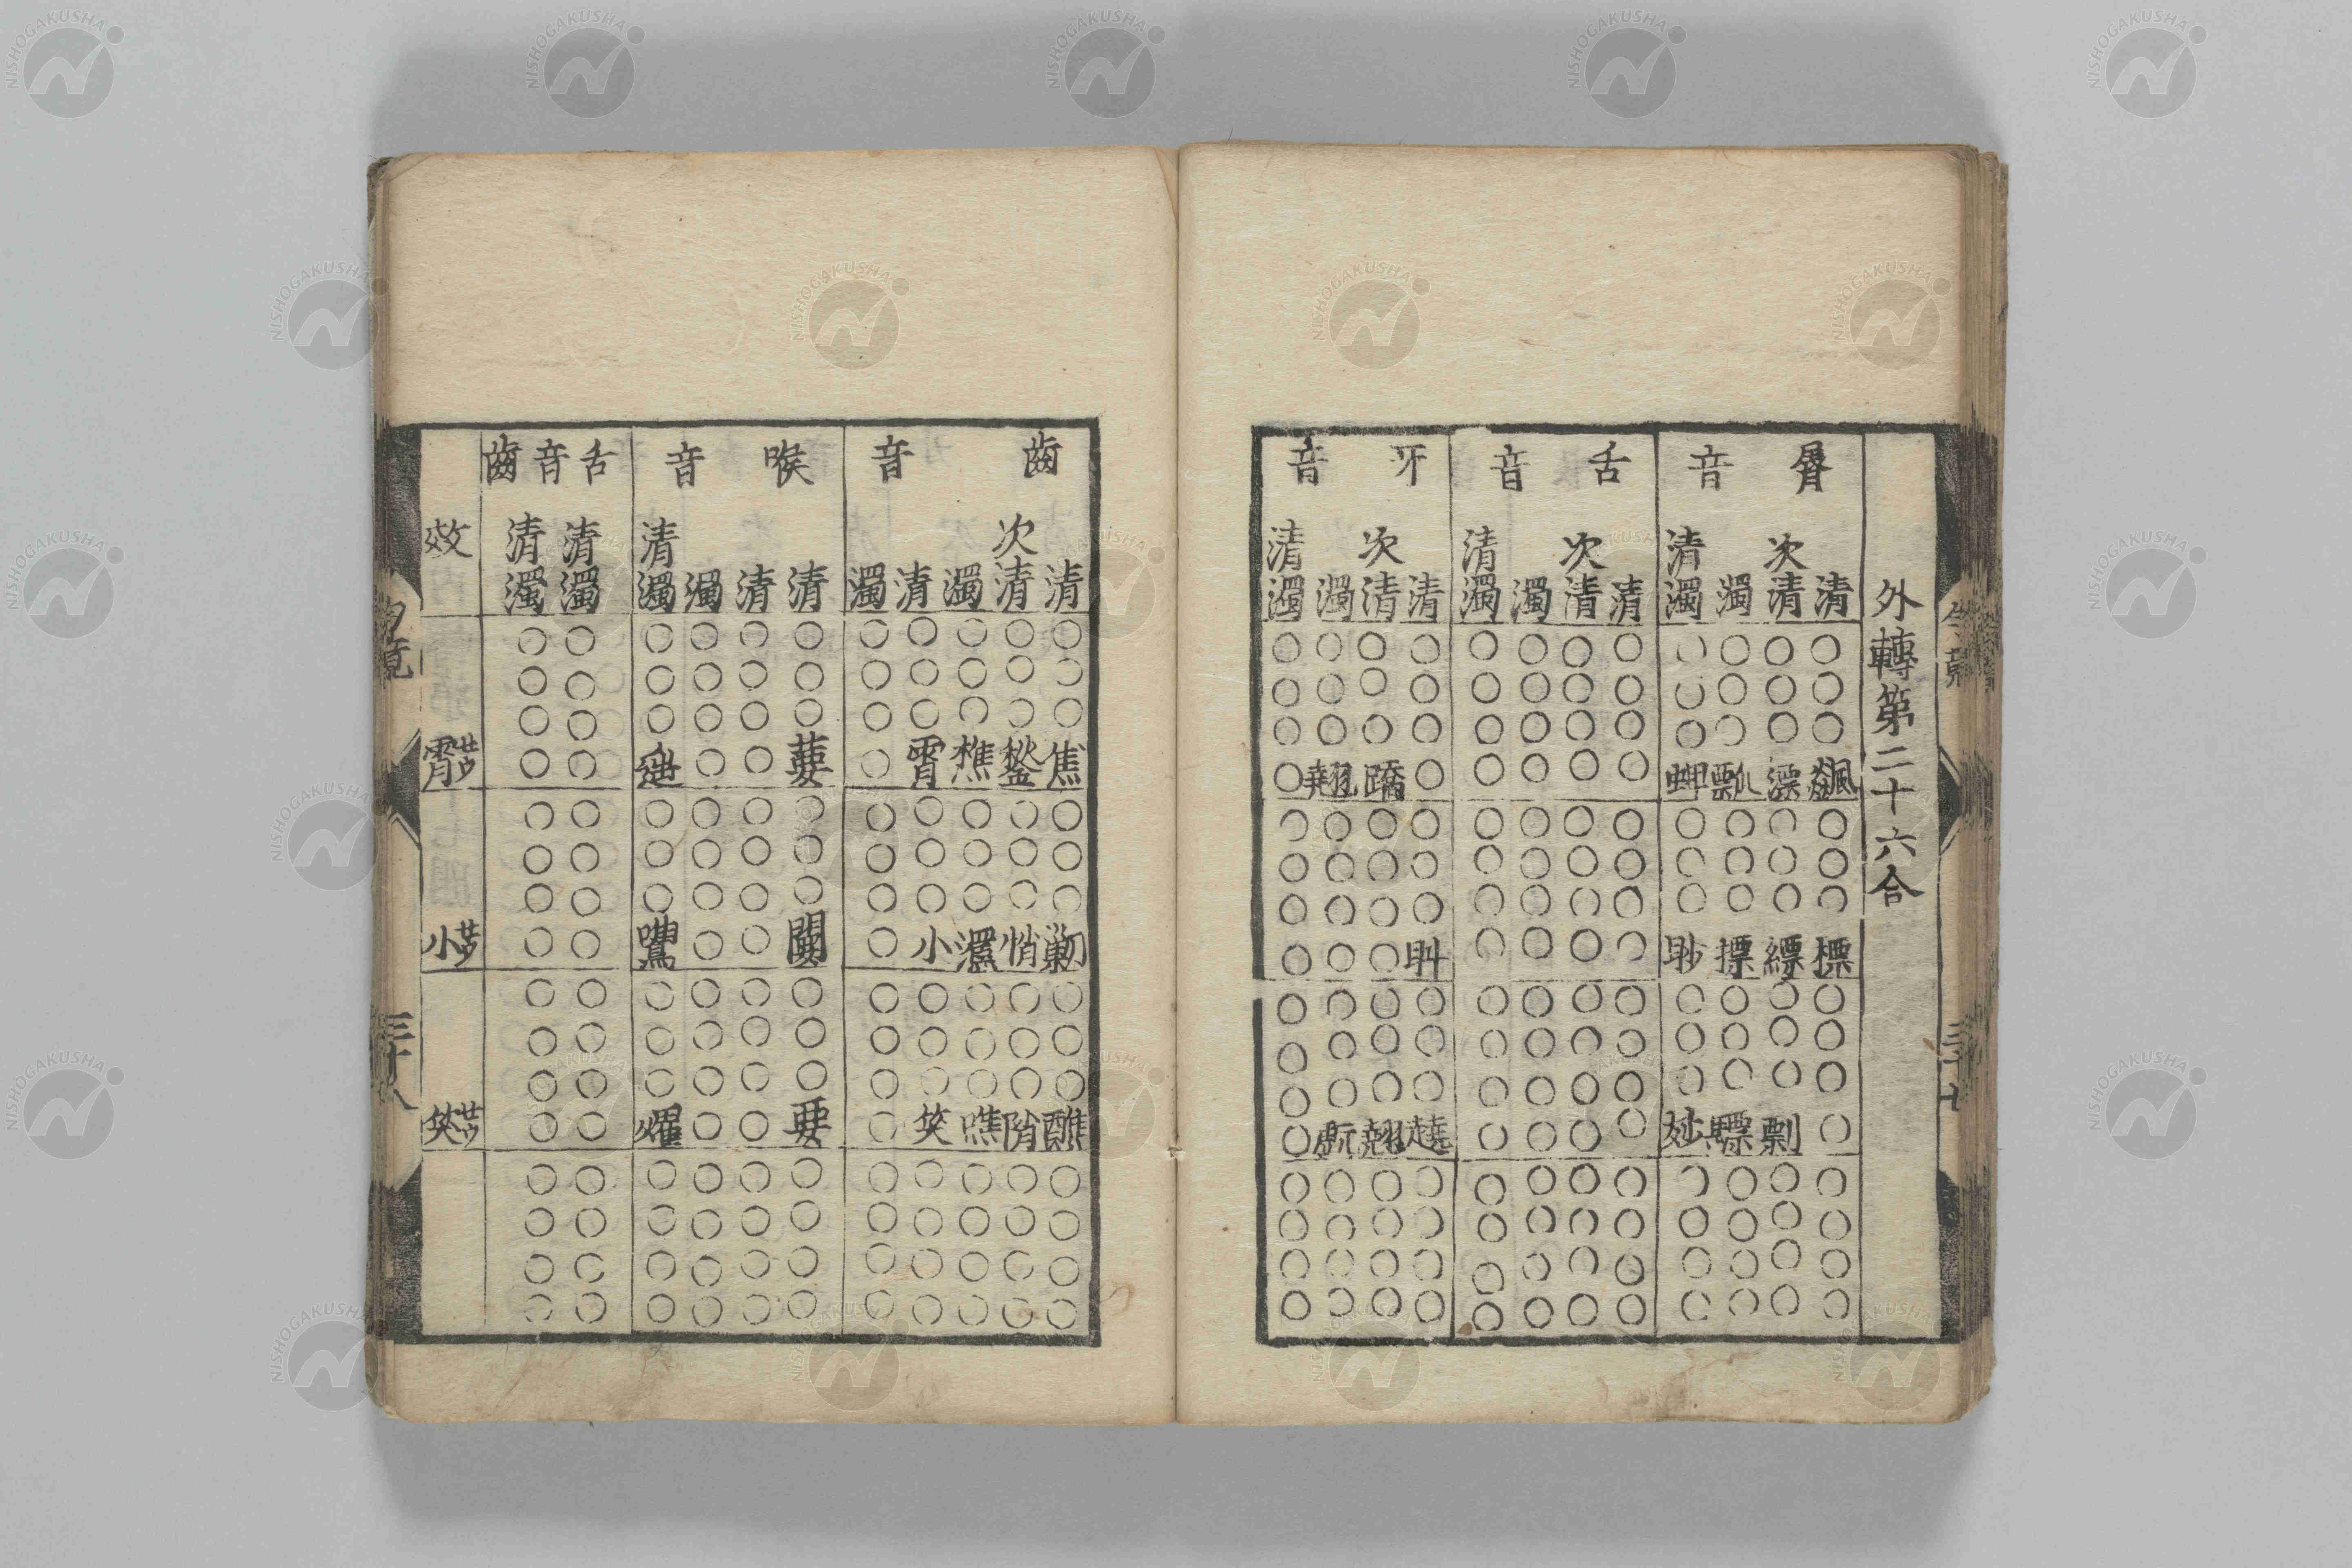 外轉第二十六合
脣音 舌音 牙音
清 次清 濁 清濁 清 次清 濁 清濁 清 次清 濁 清濁
○○○○ ○○○○ ○○○○
○○○○ ○○○○ ○○○○
○○○○ ○○○○ ○○○○
飆漂瓢蜱 ○○○○ ○蹻翹○
○○○○ ○○○○ ○○○○
○○○○ ○○○○ ○○○○
○○○○ ○○○○ ○○○○
標縹摽眇 ○○○○ ○○○
○○○○ ○○○○ ○○○○
○○○○ ○○○○ ○○○○
○○○○ ○○○○ ○○○○
○剽驃妙 ○○○○ 趬翹○
○○○○ ○○○○ ○○○○
○○○○ ○○○○ ○○○○
○○○○ ○○○○ ○○○○
○○○○ ○○○○ ○○○○
三十七
齒音 喉音 舌音齒
清 次清 濁 清 濁 清 清 濁 清濁 清濁 清濁 效
○○○○○ ○○○○ ○○
○○○○○ ○○○○ ○○
○○○○○ ○○○○ ○○
焦鍫樵霄○ 葽○○ ○○ 霄
○○○○○ ○○○○ ○○
○○○○○ ○○○○ ○○
○○○○○ ○○○○ ○○
勦悄灂小○ 闄○○鷕 ○○ 小
○○○○○ ○○○○ ○○
○○○○○ ○○○○ ○○
○○○○○ ○○○○ ○○
醮陗噍笑○ 要○○燿 ○○ 笑
○○○○○ ○○○○ ○○
○○○○○ ○○○○ ○○
○○○○○ ○○○○ ○○
○○○○○ ○○○○ ○○
三十八
NISHOGAKUSHA